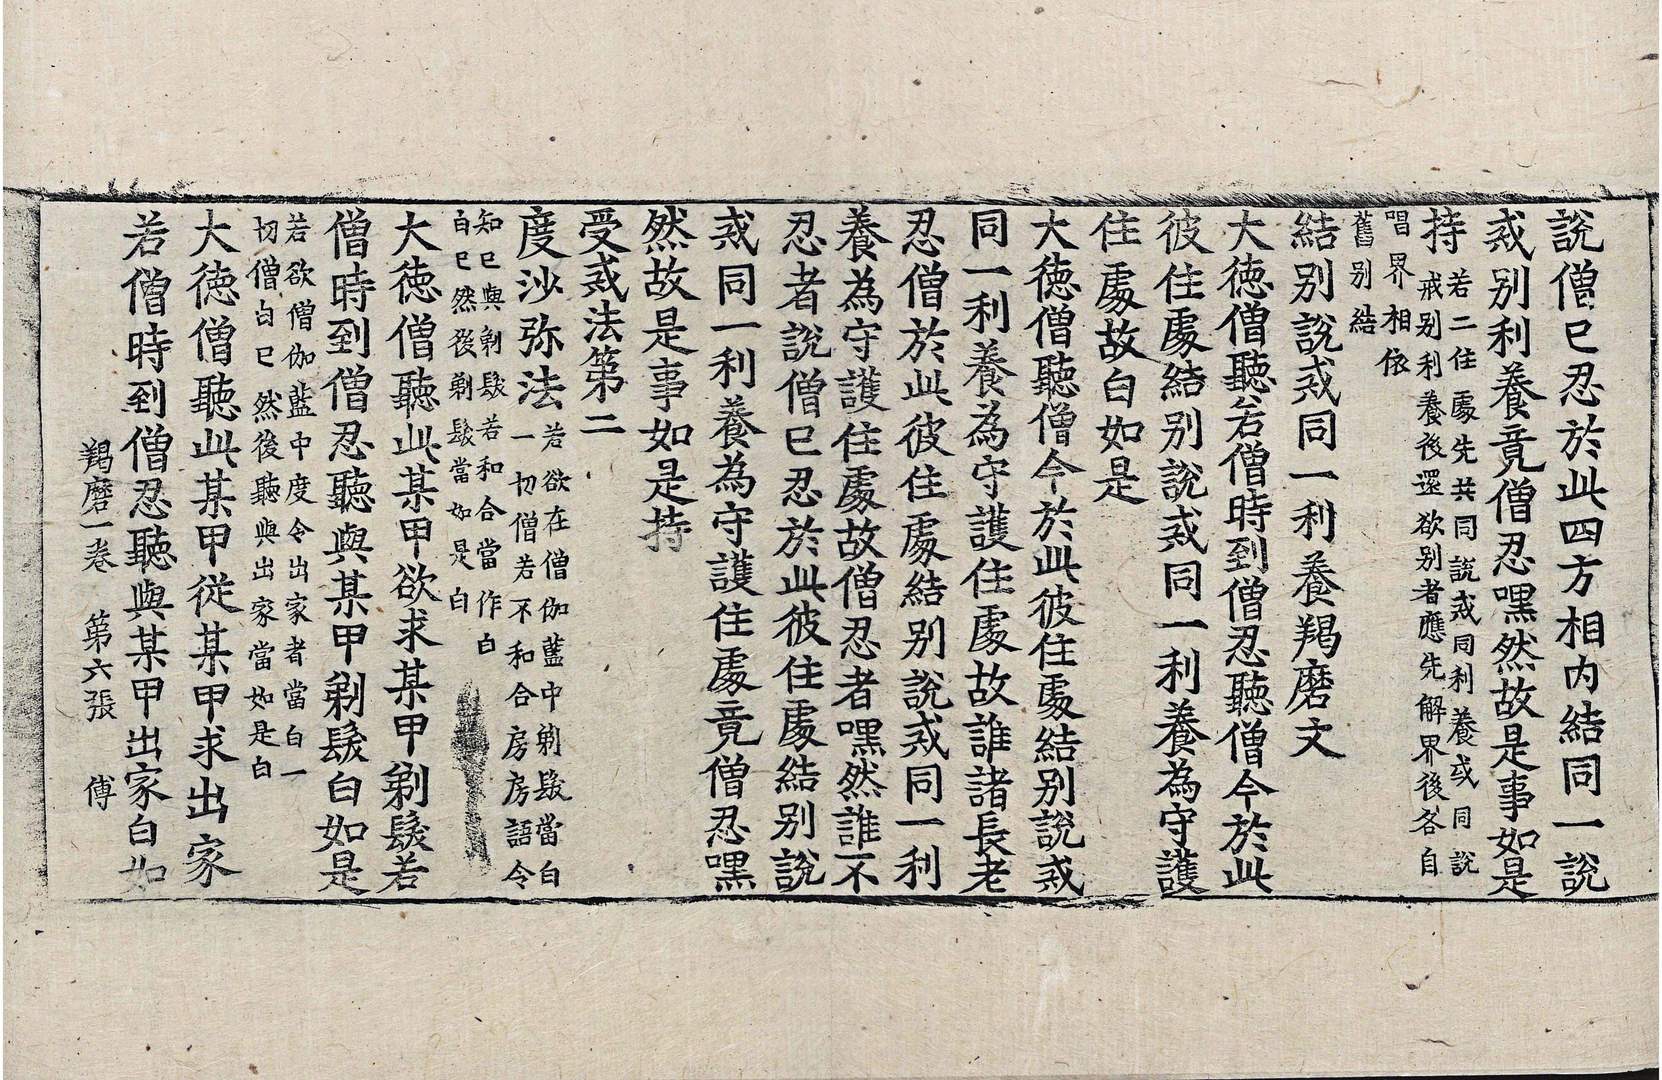 說僧已忍於此四方相内結同一說
戒别利養竟僧忍嘿然故是事如是
持
若二住處先共同說戒同利養或同說
戒别利養後還欲别者應先解界後各自
唱界相依
舊别結
結别說戒同一利養羯磨文
大德僧聽若僧時到僧忍聽僧今於此
彼住處結别說戒同一利養為守護
住處故白如是
大德僧聽僧今於此彼住處結别說戒
同一利養為守護住處故誰諸長老
忍僧於此彼住處結别說戒同一利
養為守護住處故僧忍者嘿然誰不
忍者說僧已忍於此彼住處結别說
戒同一利養為守護住處竟僧忍嘿
然故是事如是持
受戒法第二
度沙弥法
若欲在僧伽藍中剃髮當白
一切僧若不和合房房語令
知已與剃髮若和合當作白
白已然後剃髮當如是白
大德僧聽此某甲欲求某甲剃髮若
僧時到僧忍聽與某甲剃髮白如是
若欲僧伽藍中度令出家者當白一
切僧白已然後聽與出家當如是白
大德僧聽此某甲從某甲求出家
若僧時到僧忍聽與某甲出家白如
羯磨一卷 第六張 傅